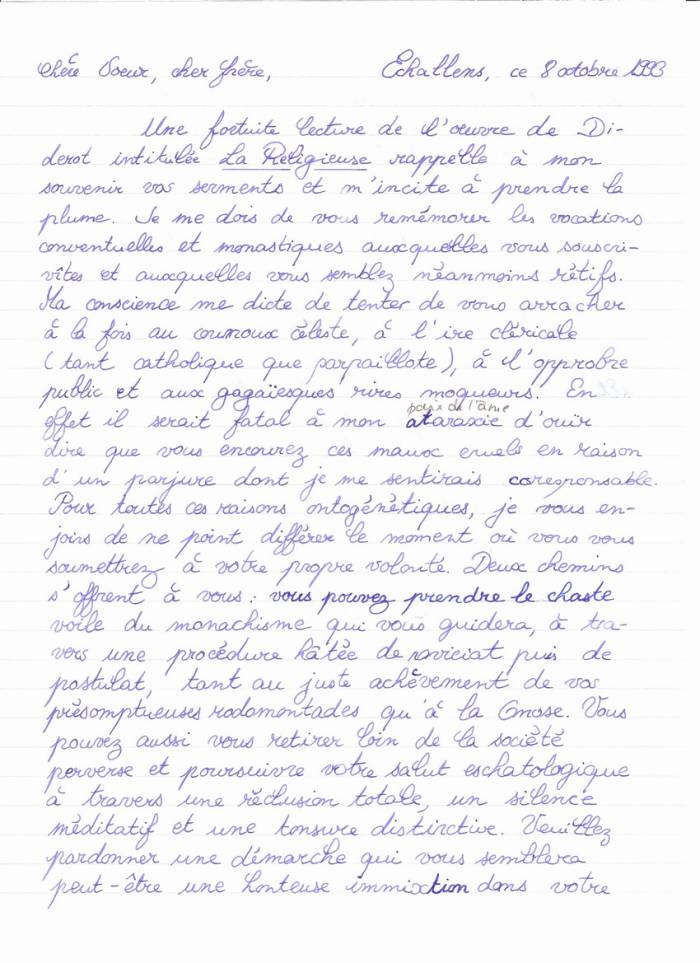 Chère Soeur, cher frère, Echallens, ce 8 octobre 1993
Une fortuite lecture de l'œuvre de Di-
derot intitulée La Religieuse rappelle à mon
souvenir vos serments et m'incite à prendre la
plume. Je me dois de vous remémorer les vocations
conventuelles et monastiques auxquelles vous souscri-
vîtes et auxquelles vous semblez néanmoins rétifs.
Ma conscience me dicte de tenter de vous arracher
à la fois au courroux céleste, à l'ire cléricale
(tant catholique que parpaillote), à l'opprobre
public et aux gagaïesques rires moqueurs. En
paix de l'âme
effet il serait fatal à mon ataraxie d'ouïr
dire que vous encourez ces maux cruels en raison
d'un parjure dont je me sentirais coresponsable.
Pour toutes ces raisons ontogénétiques, je vous en-
joins de ne point différer le moment où vous vous
soumettrez à votre propre volonté. Deux chemins
s'offrent à vous : vous pouvez prendre le chaste
voile du monachisme qui vous guidera, à tra-
vers une procédure hâtée de noviciat puis de
postulat, tant au juste achèvement de vos
présomptueuses rodomontades qu'à la Gnose. Vous
pouvez aussi vous retirer loin de la société
perverse et poursuivre votre salut eschatologique
à travers une réclusion totale, un silence
méditatif et une tonsure distinctive. Veuillez
pardonner une démarche qui vous semblera
peut-être une honteuse immixtion dans votre